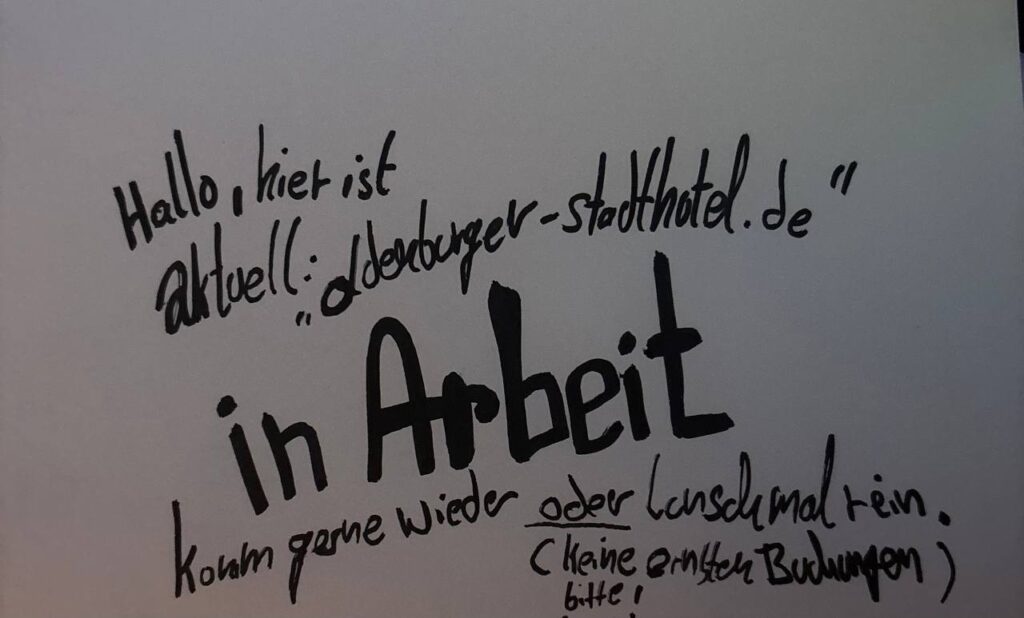 Hallo, hier ist
aktuell:
"oldenburger-stadthotel.de"
in Arbeit
komm gerne wieder oder lunsch mal rein.
(keine ernsten Buchungen)
bitte!